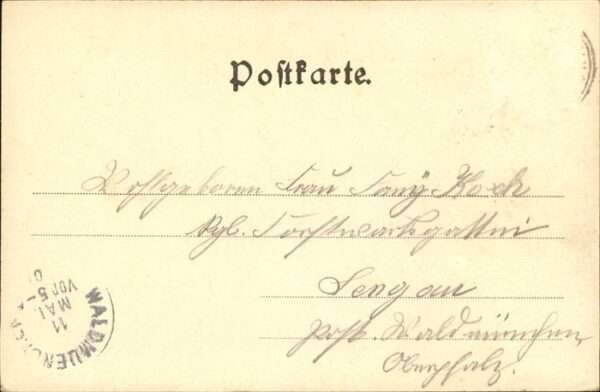 Postkarte.
Wohlgeboren Frau Fany Koch
Kgl. Forstwartsgattin
Lengau
Post. Waldmünchen
Oberpfalz.
WALDMUENCHEN
11
MAI
VOR 5